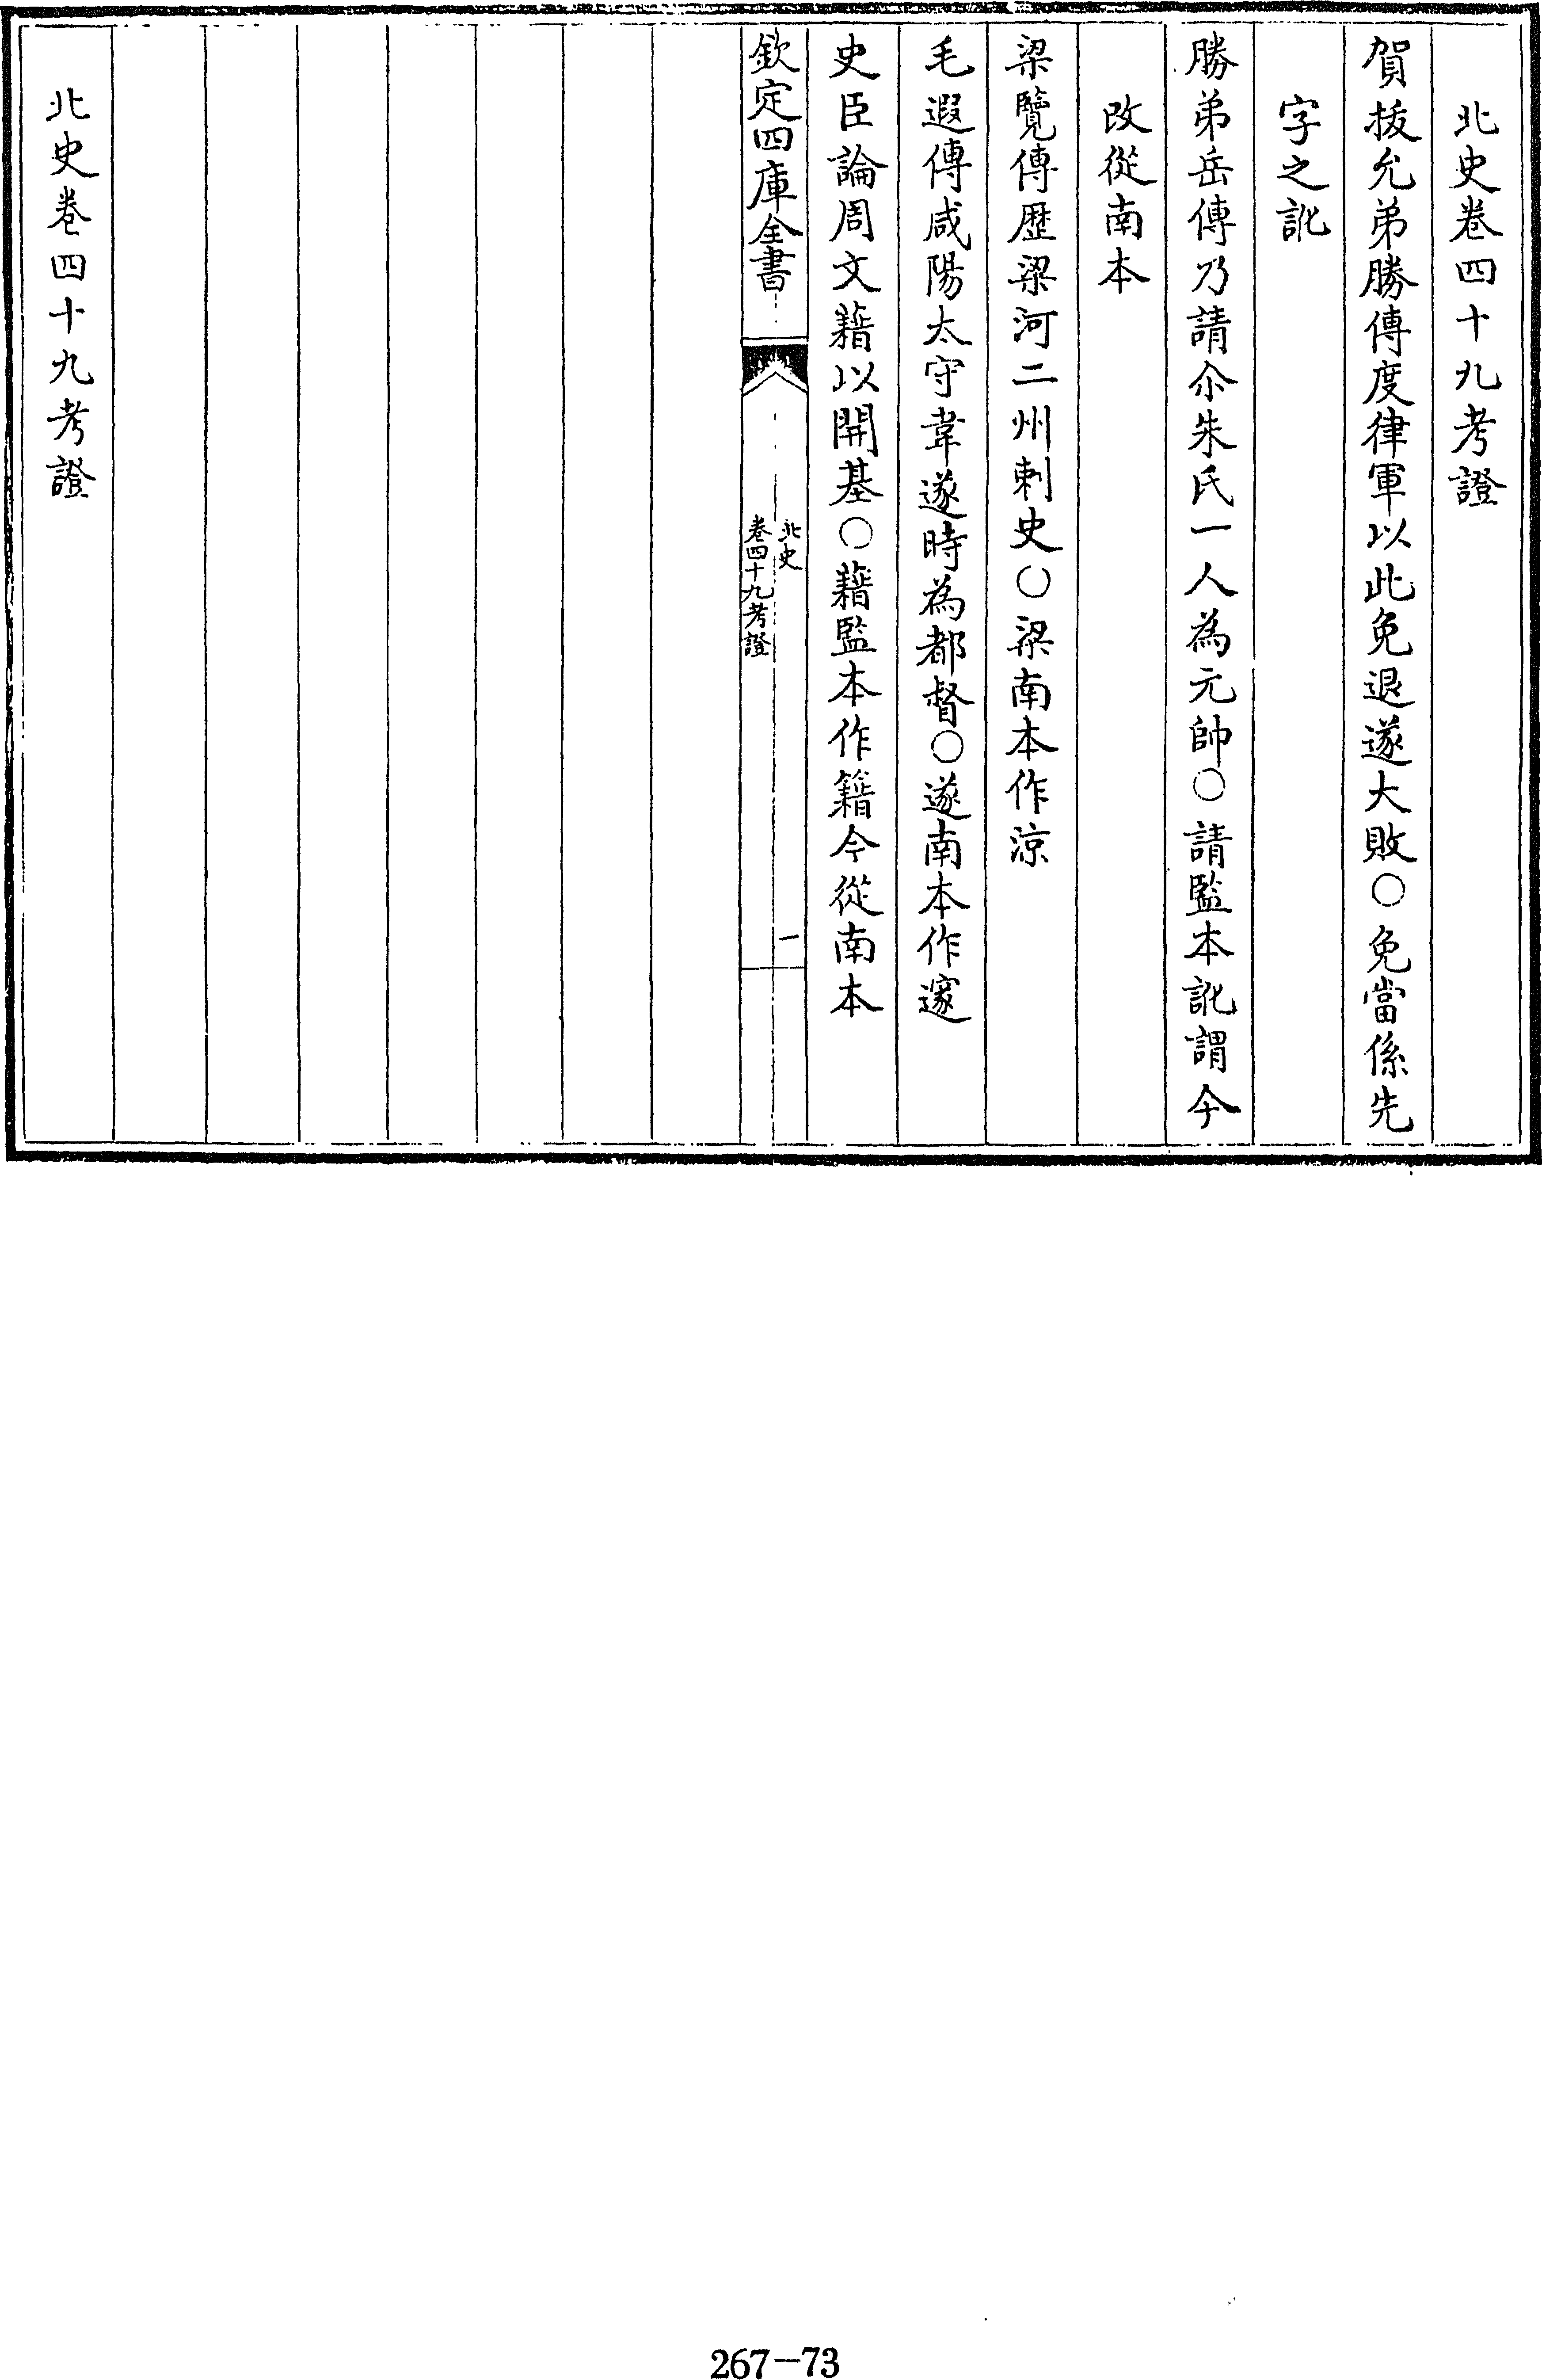 北史卷四十九考證
賀拔允弟勝傳度律軍以此免退遂大敗○免當係先
字之訛
勝弟岳傳乃請尒朱氏一人為元帥○請監本訛謂今
改從南本
梁覽傳歴梁河二州刺史○梁南本作涼
毛遐傳咸陽太守韋遂時為都督○遂南本作邃
史臣論周文藉以開基○藉監本作籍今從南本
欽定四庫全書
北史
卷四十九考證
一
北史卷四十九考證
267-73